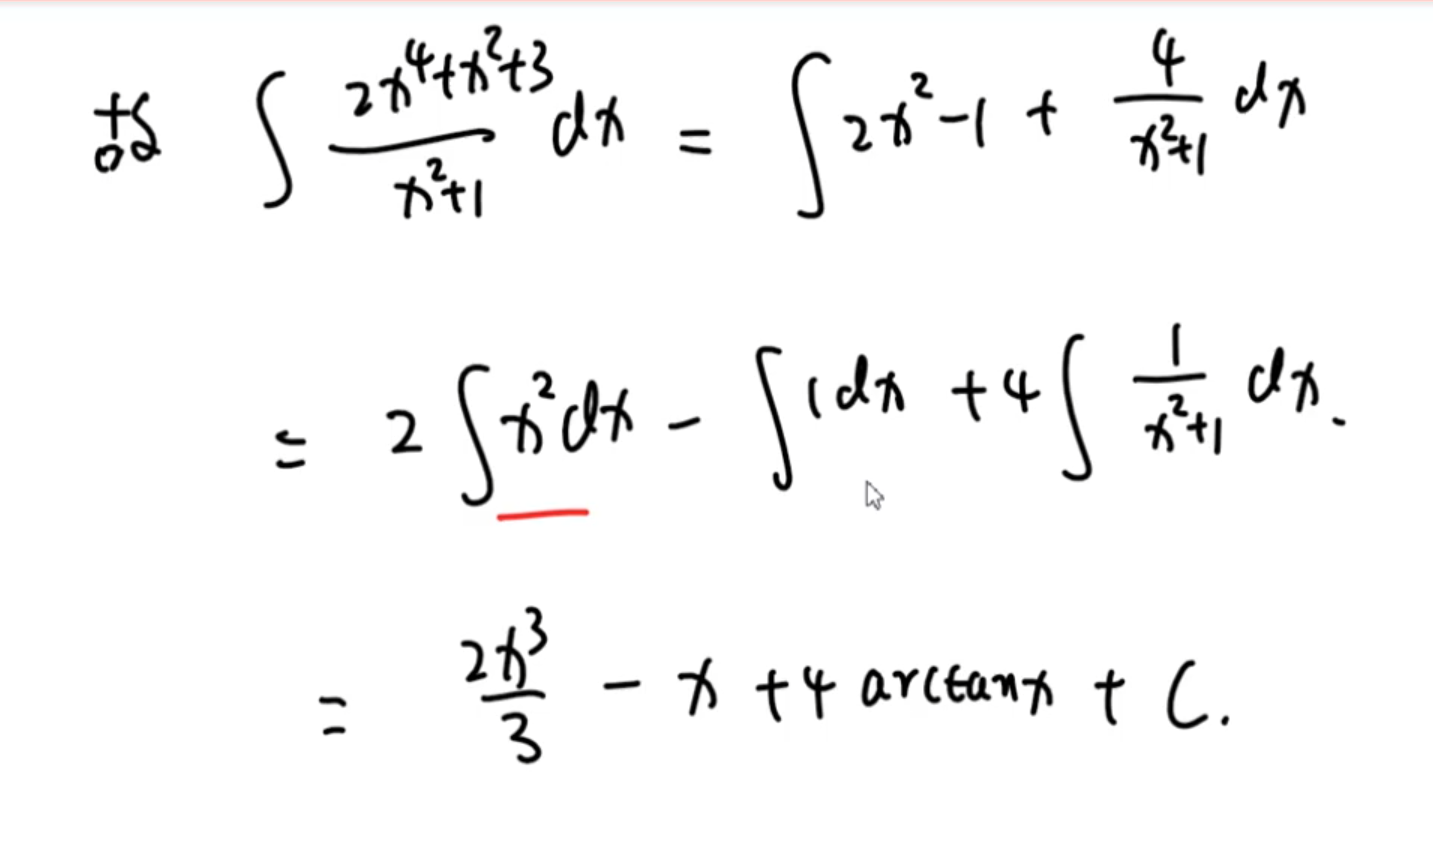 求 ∫ (2x⁴+x²+3)/(x²+1) dx = ∫ 2x²-1 + 4/(x²+1) dx
= 2 ∫ x²dx - ∫ 1dx + 4 ∫ 1/(x²+1) dx.
= 2x³/3 - x + 4 arctanx + C.